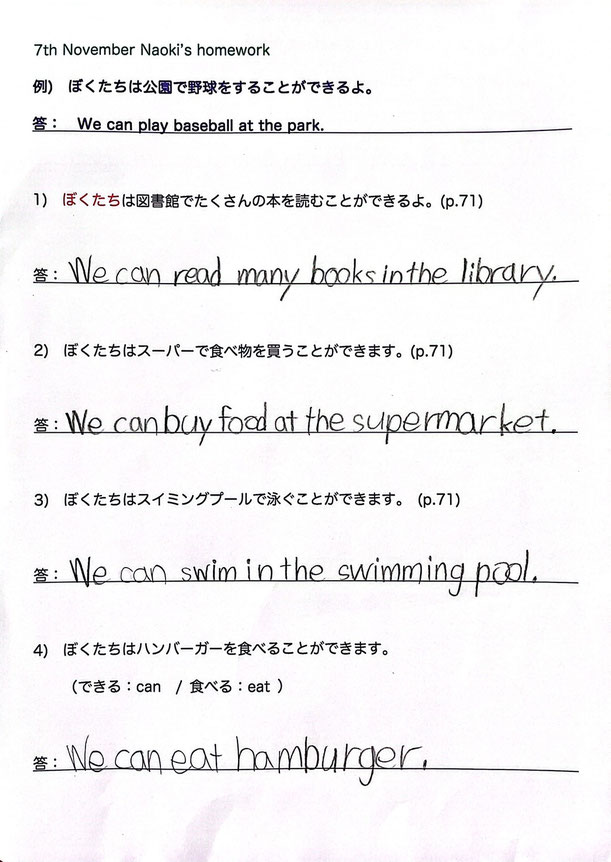 7th November Naoki's homework
例） ぼくたちは公園で野球をすることができるよ。
答： We can play baseball at the park.
1) ぼくたちは図書館でたくさんの本を読むことができるよ。(p.71)
答： We can read many books in the library.
2) ぼくたちはスーパーで食べ物を買うことができます。(p.71)
答： We can buy food at the supermarket.
3) ぼくたちはスイミングプールで泳ぐことができます。 (p.71)
答： We can swim in the swimming pool.
4) ぼくたちはハンバーガーを食べることができます。
（できる：can / 食べる：eat ）
答： We can eat hamburger.